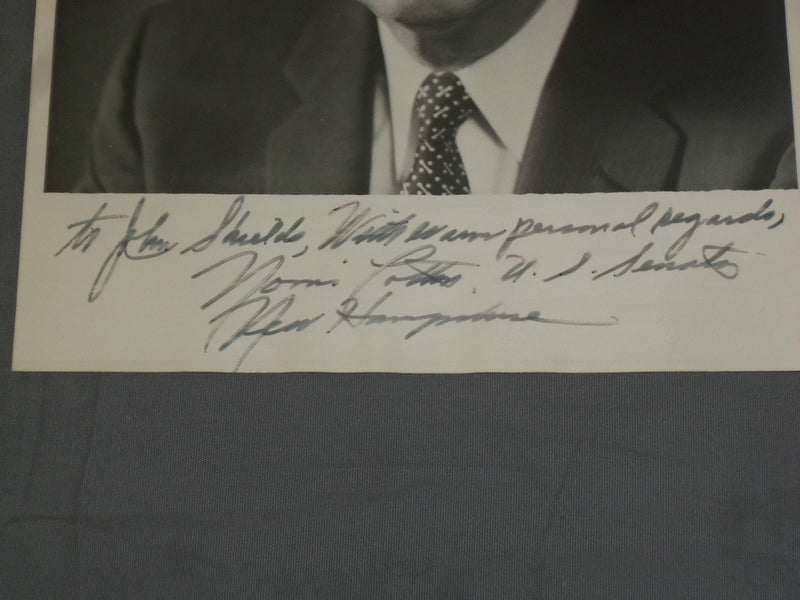 to John Shields, With warm personal regards,
Norris Cotton, U.S. Senator
New Hampshire